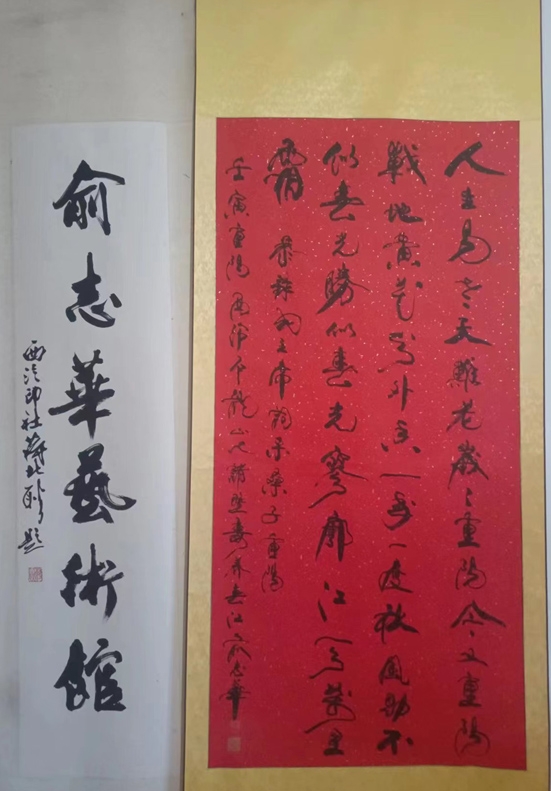 人生易老天難老歲々重陽今又重陽
戰地黄花分外香一年一度秋風勁不
似春光勝似春光寥廓江天萬里
霜 恭錄毛主席詞采桑子重陽
壬寅重陽 春江俞志華
俞志華藝術館
西泠印社蔣北耿題